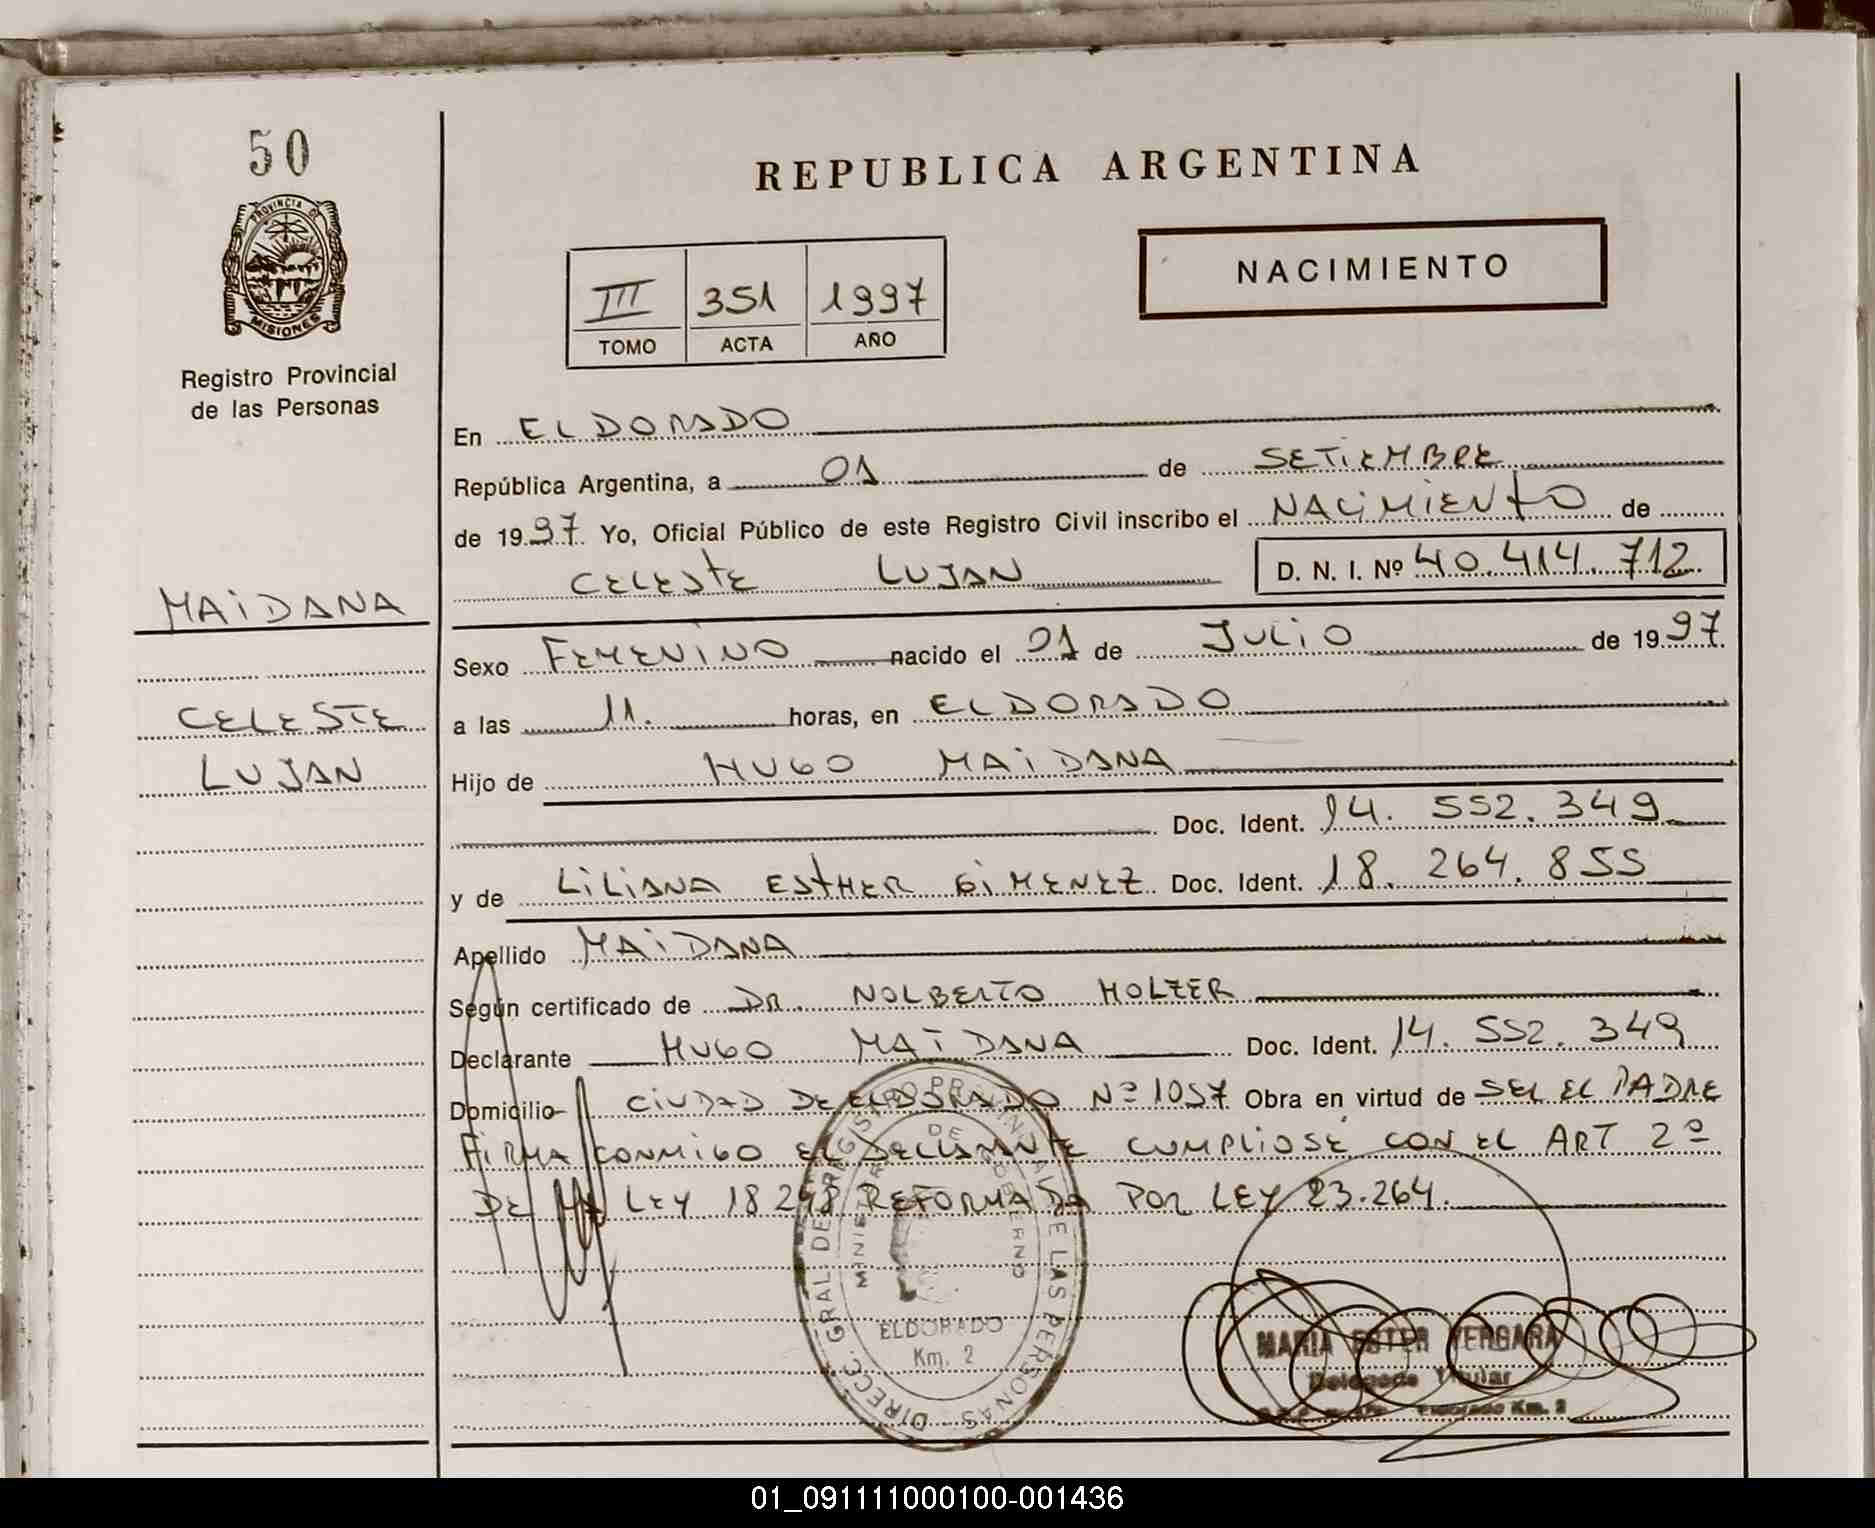 50
PROVINCIA DE
MISIONES
Registro Provincial
de las Personas
MAIDANA
CELESTE
LUJAN
REPUBLICA ARGENTINA
III 351 1997
TOMO ACTA AÑO
NACIMIENTO
En ELDORADO
República Argentina, a 01 de SETIEMBRE
de 1997 Yo, Oficial Público de este Registro Civil inscribo el NACIMIENTO de
CELESTE LUJAN D. N. I. Nº 40.414.712
Sexo FEMENINO nacido el 01 de JULIO de 1997
a las 11. horas, en ELDORADO
Hijo de HUGO MAIDANA
Doc. Ident. 14. 552. 349
y de LILIANA ESTHER GIMENEZ Doc. Ident. 18. 264. 855
Apellido MAIDANA
Según certificado de DR. NOLBERTO HOLZER
Declarante HUGO MAIDANA Doc. Ident. 14. 552. 349
Domicilio CIUDAD DE ELDORADO Nº 1057 Obra en virtud de SER EL PADRE
FIRMA CONMIGO EL DECLARANTE CUMPLIOSE CON EL ART 2º
DE LA LEY 18248 REFORMADA POR LEY 23.264.
DIRECC. GRAL DE REGISTRO PROVINCIAL DE LAS PERSONAS
MINISTERIO DE GOBIERNO
ELDORADO
Km. 2
MARIA ESTER VERGARA
Delegada Titular
Eldorado Km. 2
01_091111000100-001436